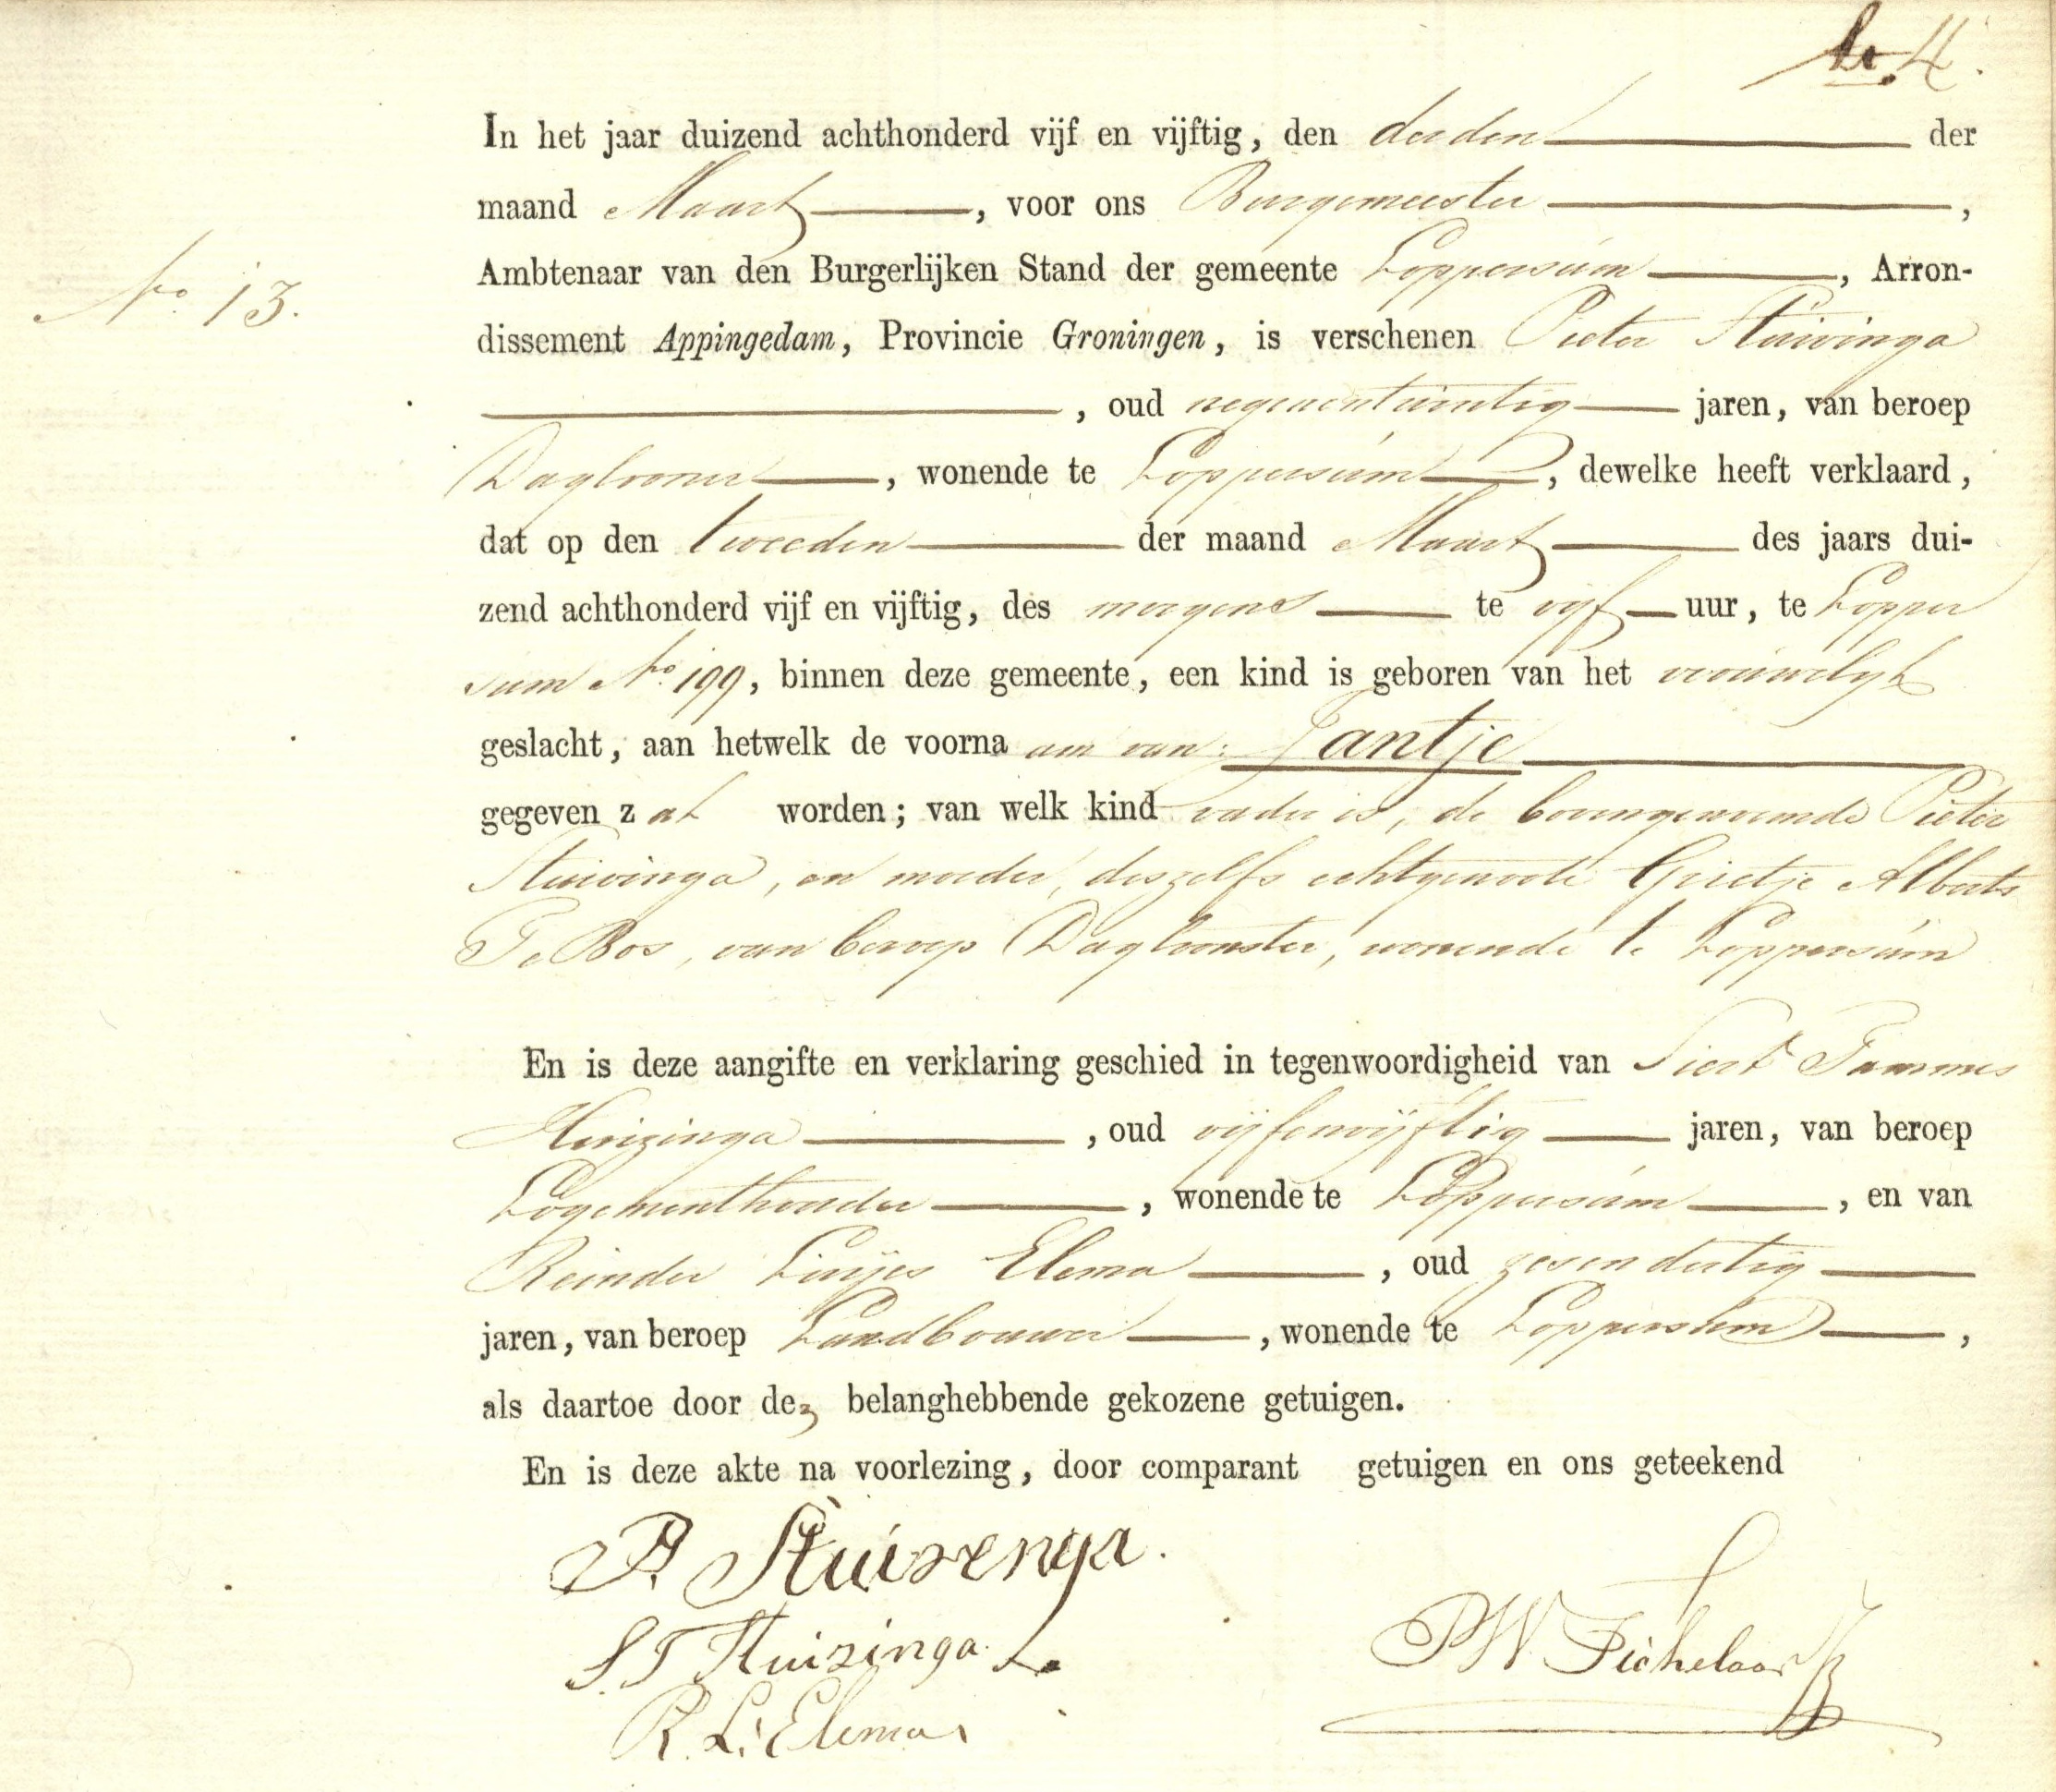 4.
In het jaar duizend achthonderd vijf en vijftig, den derden der
maand Maart, voor ons Burgemeester,
Ambtenaar van den Burgerlijken Stand der gemeente Loppersum, Arron-
No. 13.
dissement Appingedam, Provincie Groningen, is verschenen Pieter Stuivinga
, oud negenentwintig jaren, van beroep
Daglooner, wonende te Loppersum, dewelke heeft verklaard,
dat op den tweeden der maand Maart des jaars dui-
zend achthonderd vijf en vijftig, des morgens te vijf uur, te Lopper
sum No. 199, binnen deze gemeente, een kind is geboren van het vrouwelijk
geslacht, aan hetwelk de voorna am van: Jantje
gegeven z al worden; van welk kind vader is, de bovengenoemde Pieter
Stuivinga, en moeder, deszelfs echtgenoote Grietje Alberts
Te Bos, van beroep Dagloonster, wonende te Loppersum
En is deze aangifte en verklaring geschied in tegenwoordigheid van Siert Tammes
Huizinga, oud vijfenvijftig jaren, van beroep
Logementhouder, wonende te Loppersum, en van
Reinder Luijes Elema, oud zesendertig
jaren, van beroep Landbouwer, wonende te Loppersum,
als daartoe door de belanghebbende gekozene getuigen.
En is deze akte na voorlezing, door comparant getuigen en ons geteekend
P. Stuivenga.
S. T Huizinga.
R. L. Elema
PW Tichelaar